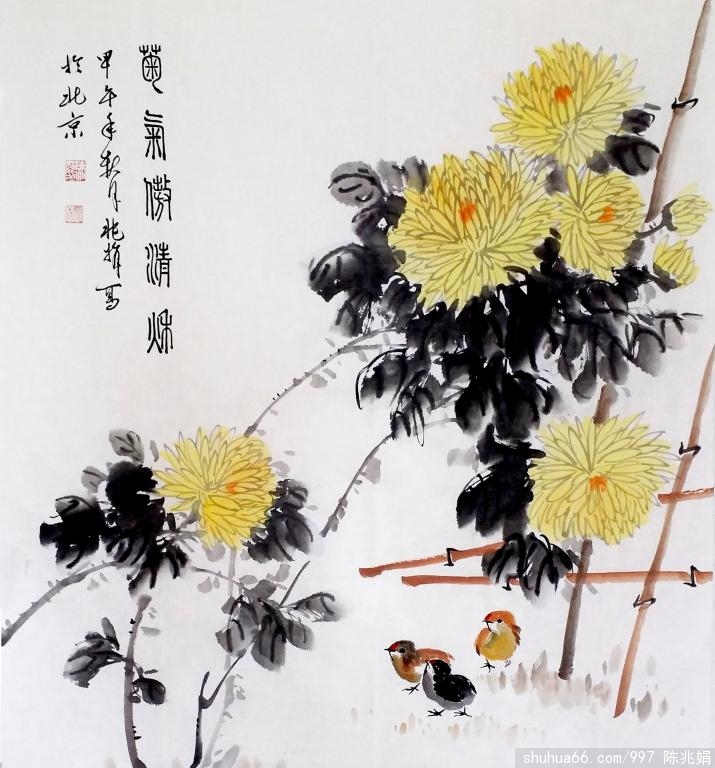 菊气傲清秋
甲午年秋月兆娟写
於北京
shuhua66.com/997 陈兆娟